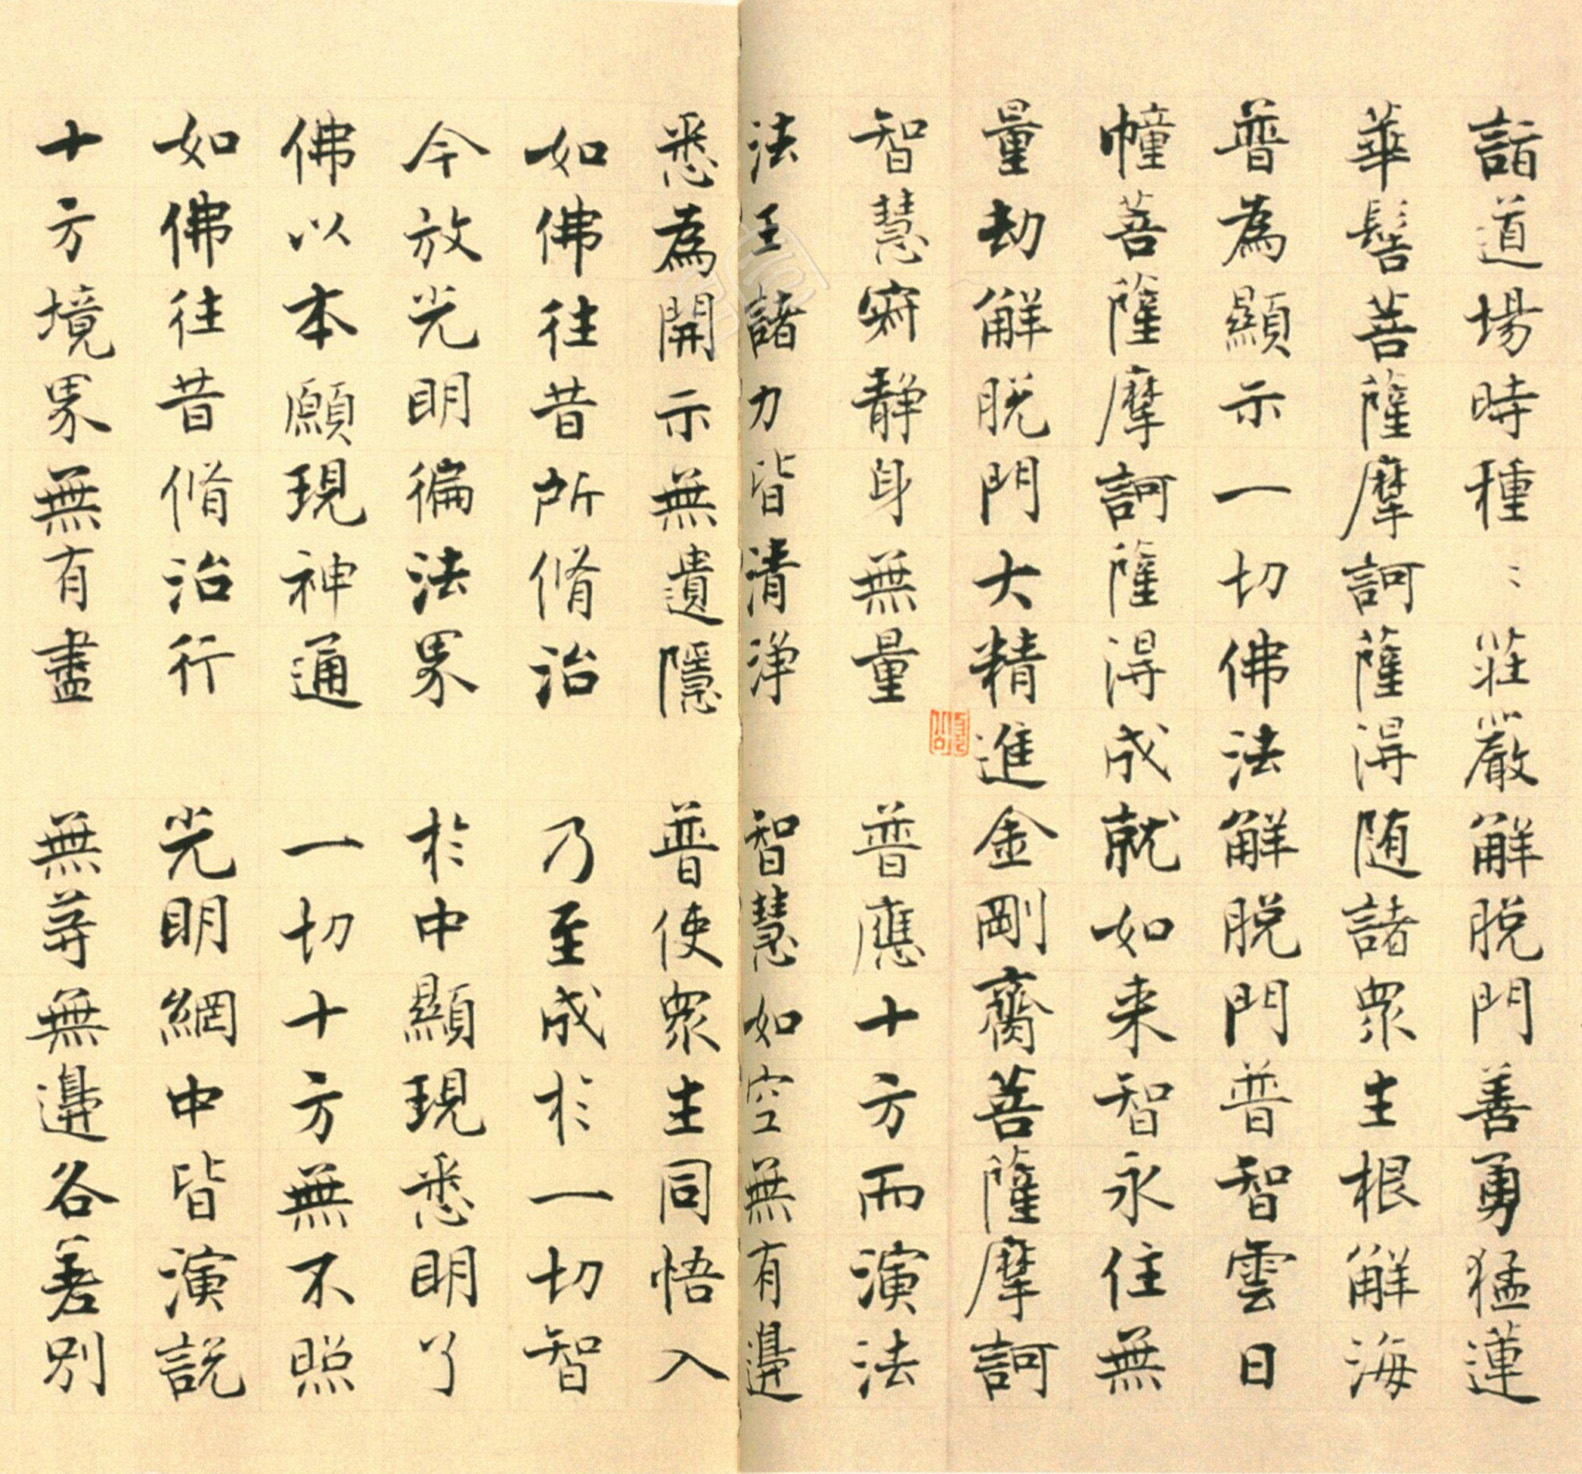 詣道場時種〻莊嚴解脫門善勇猛蓮
華髻菩薩摩訶薩淂随諸眾生根解海
普為顯示一切佛法解脫門普智雲日
幢菩薩摩訶薩淂成就如来智永住無
量劫解脫門大精進金剛齎菩薩摩訶
智慧寂静身無量　普應十方而演法
法王諸力皆清淨　智慧如空無有邊
悉為開示無遺隱　普使眾生同悟入
如佛往昔所脩治　乃至成於一切智
今放光明徧法界　於中顯現悉明了
佛以本願現神通　一切十方無不照
如佛往昔脩治行　光明網中皆演説
十方境界無有盡　無等無邊各差別